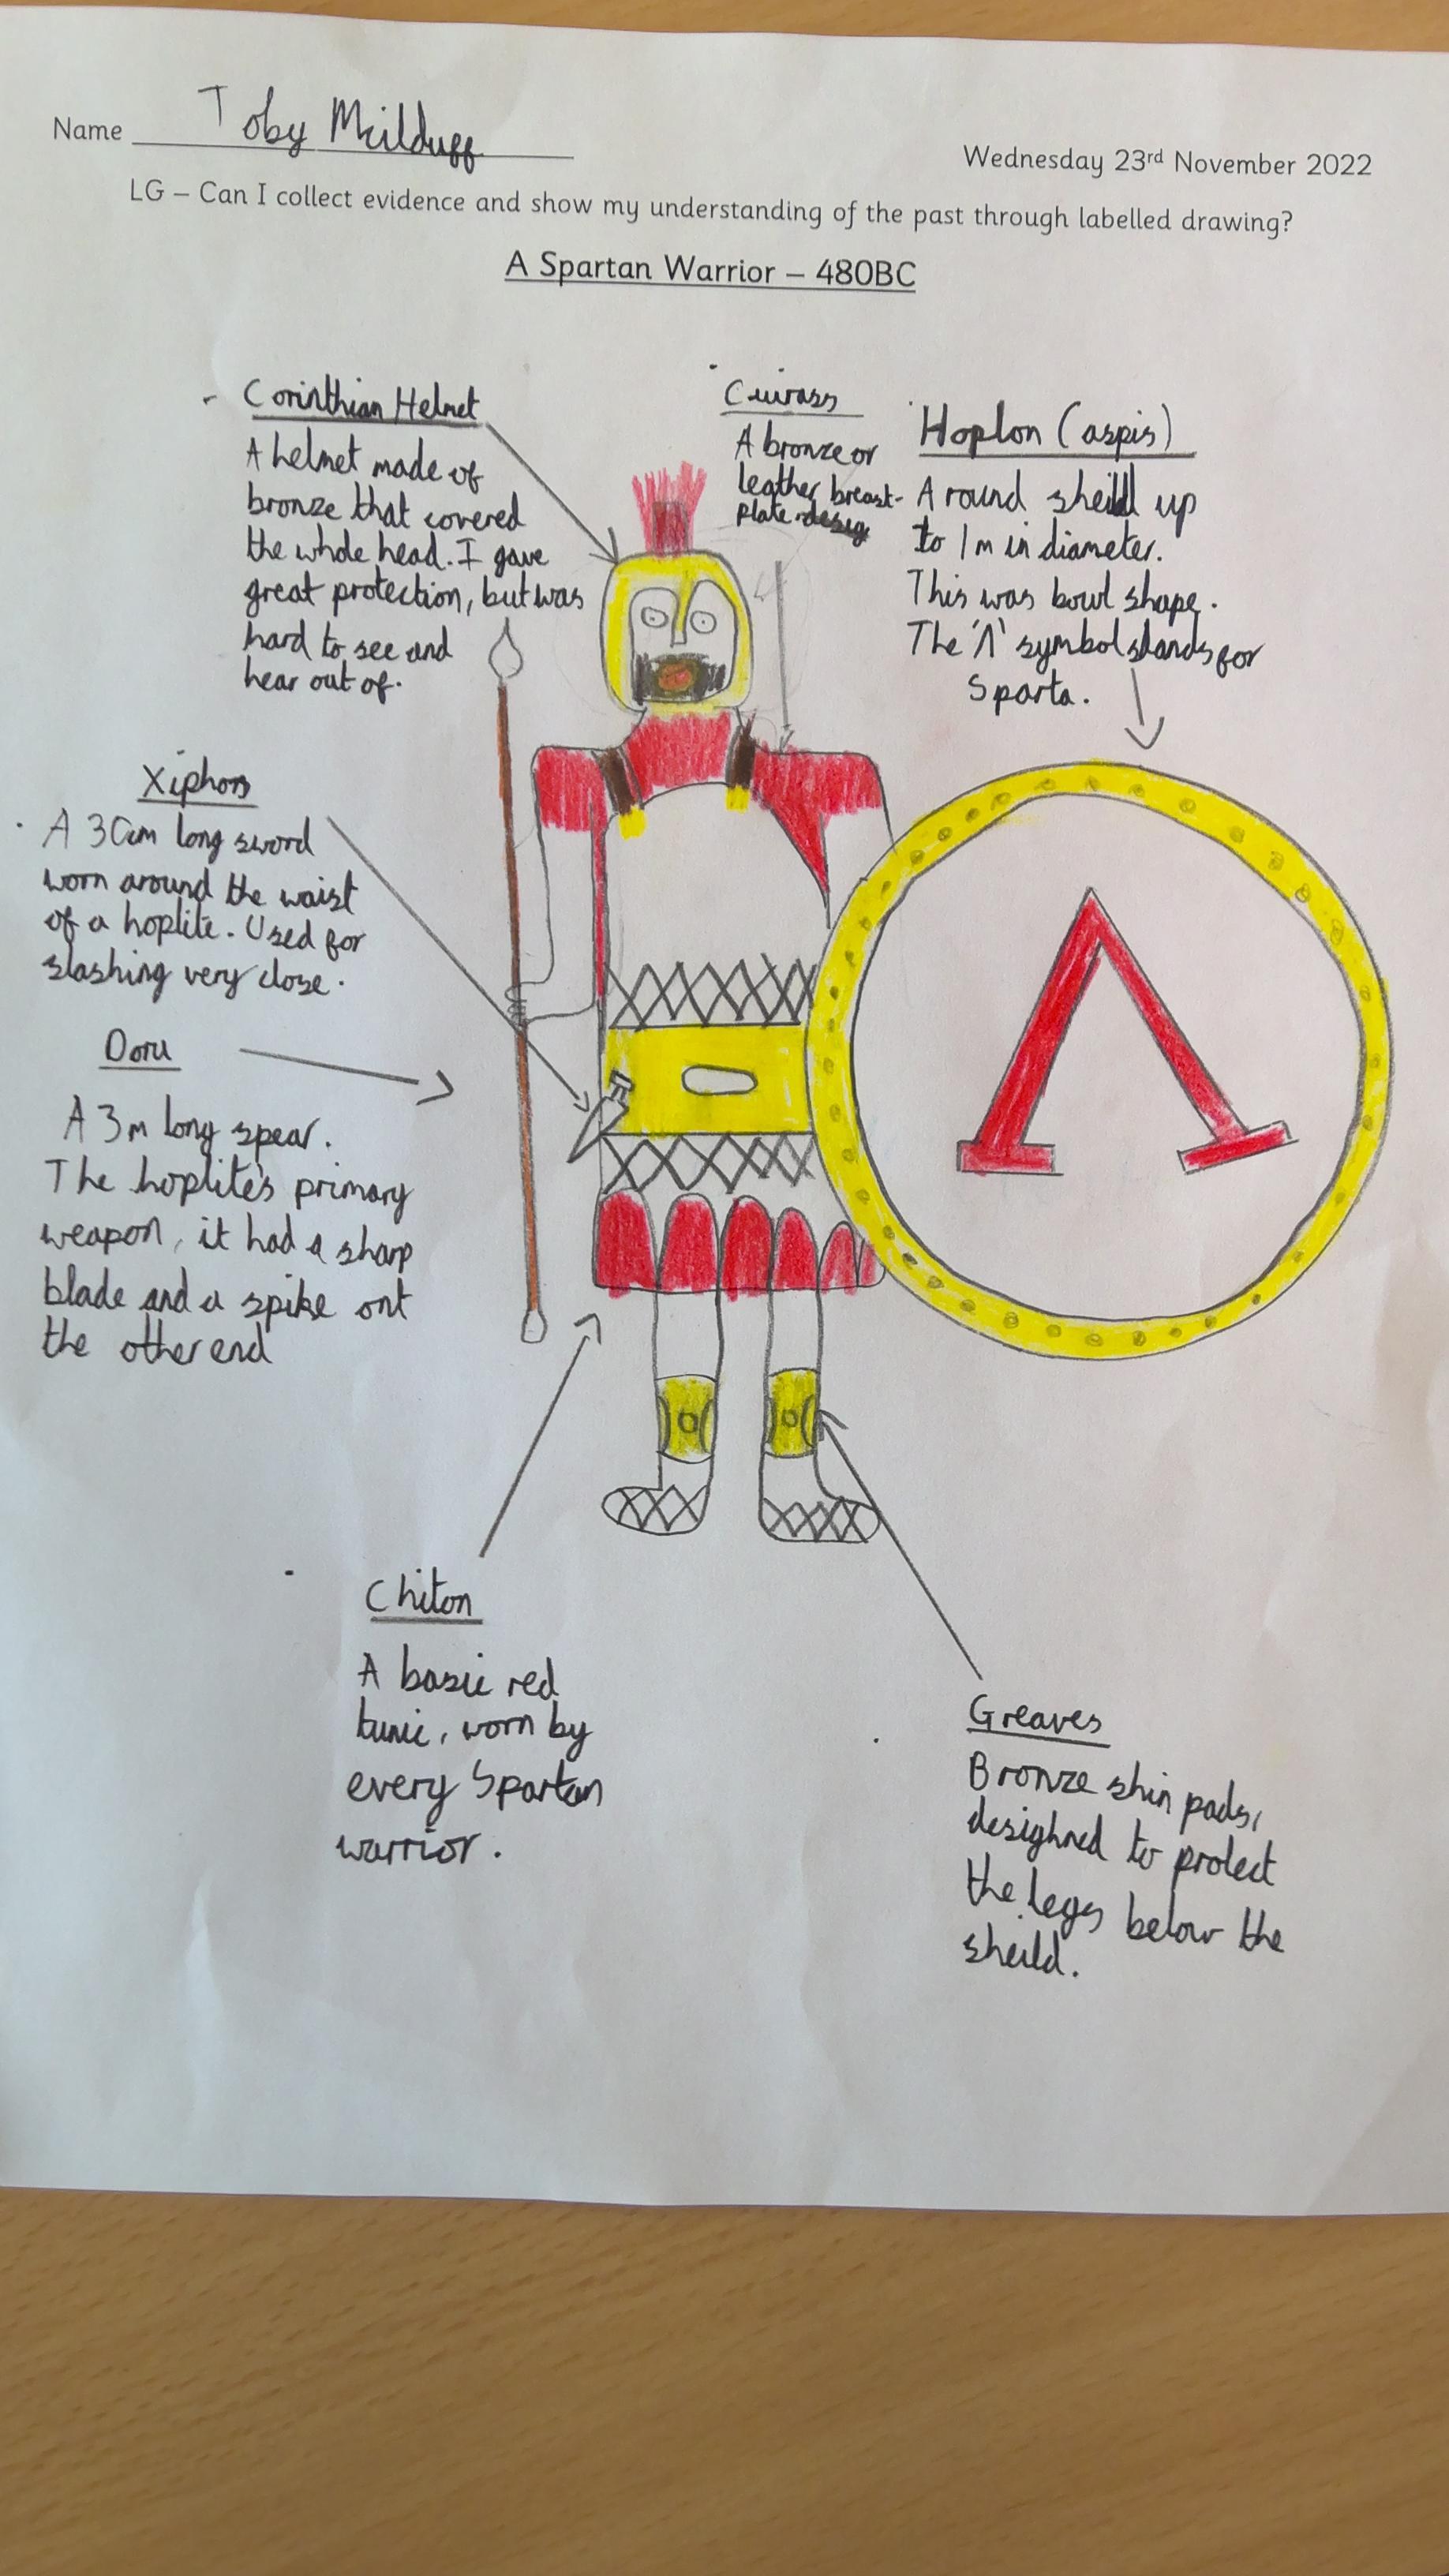 Name Toby Mcilduff
Wednesday 23rd November 2022
LG – Can I collect evidence and show my understanding of the past through labelled drawing?
A Spartan Warrior – 480BC
Corinthian Helmet
A helmet made of
bronze that covered
the whole head. I gave
great protection, but was
hard to see and
hear out of.
Cuirass
A bronze or
leather breast-
plate
Hoplon (aspis)
A round sheild up
to 1m in diameter.
This was bowl shape.
The 'Λ' symbol stands for
Sparta.
Xiphos
A 30cm long sword
worn around the waist
of a hoplite. Used for
slashing very close.
Doru
A 3m long spear.
The hoplite's primary
weapon, it had a sharp
blade and a spike ont
the other end
Λ
Chiton
A basic red
tunic, worn by
every Spartan
warrior.
Greaves
Bronze shin pads,
desighned to protect
the legs below the
sheild.